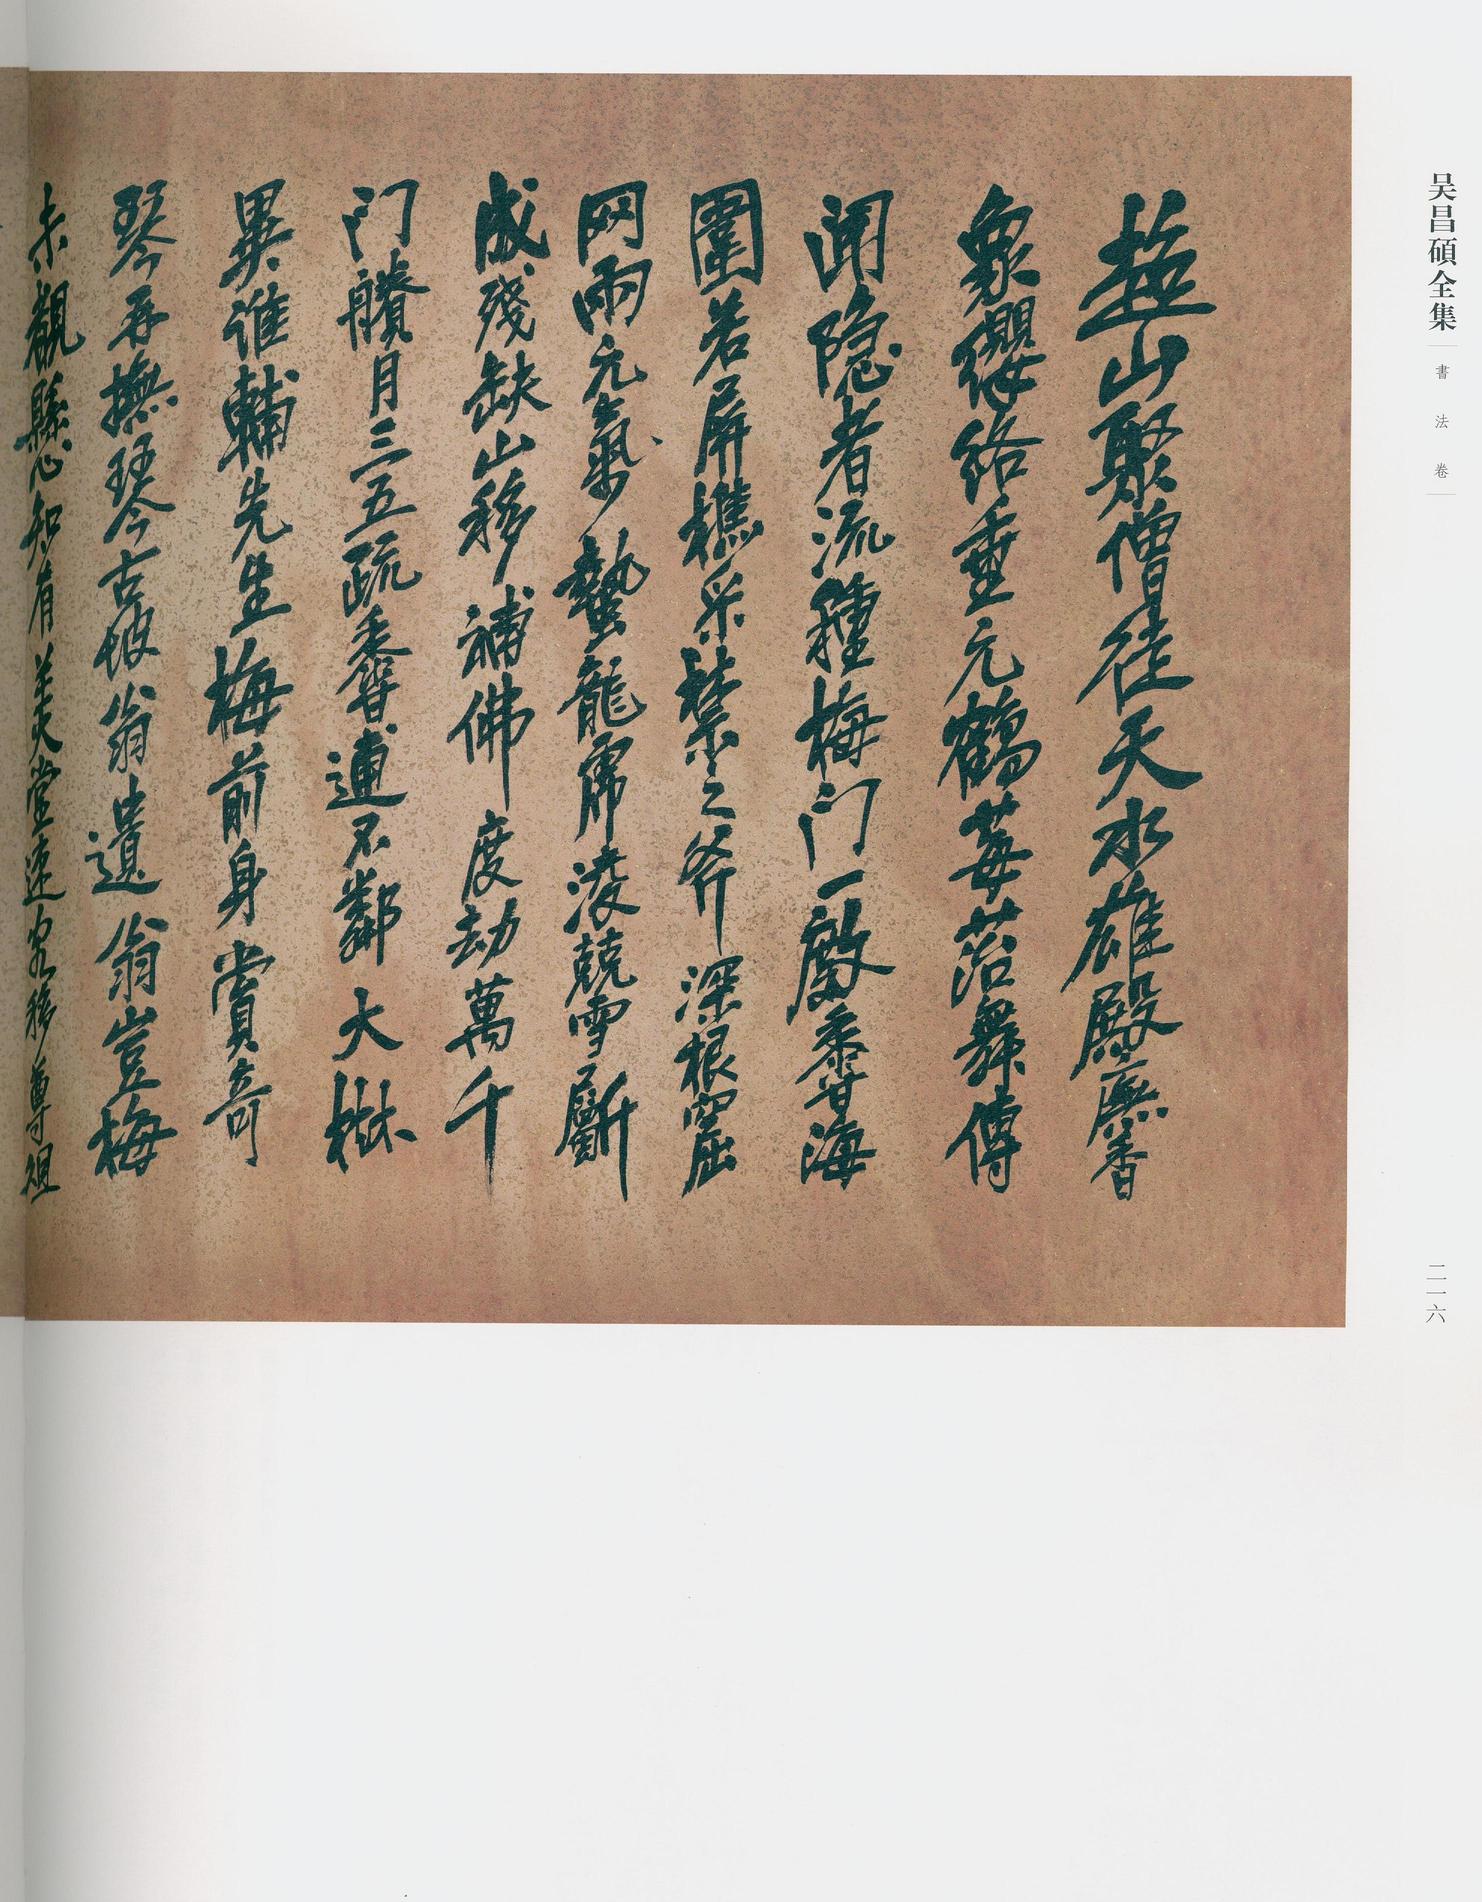 吴昌碩全集
書法卷
二一六
超山聚僧徒天水雄殿廡香
象纓絡垂元鶴莓苔舞傳
聞隐者流種梅門一敞黍香海
圍若屏樵采禁之斧深根窟
网雨元氣蟄龍虎凌兢雪斸
成殘缺山移補佛度劫萬千
门臘月三五疏香逋不鄰大樹
異誰輔先生梅前身賞奇
琴再撫琴古坡翁遺翁豈梅
未觀縣知有美堂速客移尊俎